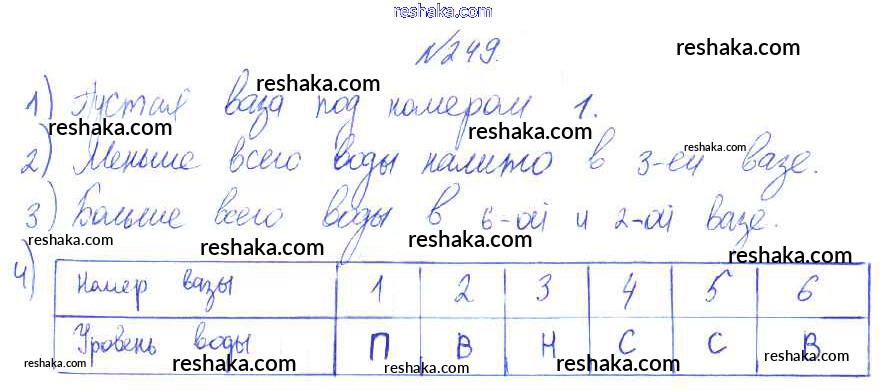 reshaka.com
№249.
reshaka.com
reshaka.com
1) Пустая ваза под номером 1.
reshaka.com
reshaka.com
reshaka.com
2) Меньше всего воды налито в 3-ей вазе.
3) Больше всего воды в 6-ой и 2-ой вазе.
reshaka.com
reshaka.com
reshaka.com
reshaka.com
4)
Номер вазы 1 2 3 4 5 6
Уровень воды П В Н С С В
reshaka.com
reshaka.com
reshaka.com
reshaka.com
reshaka.com